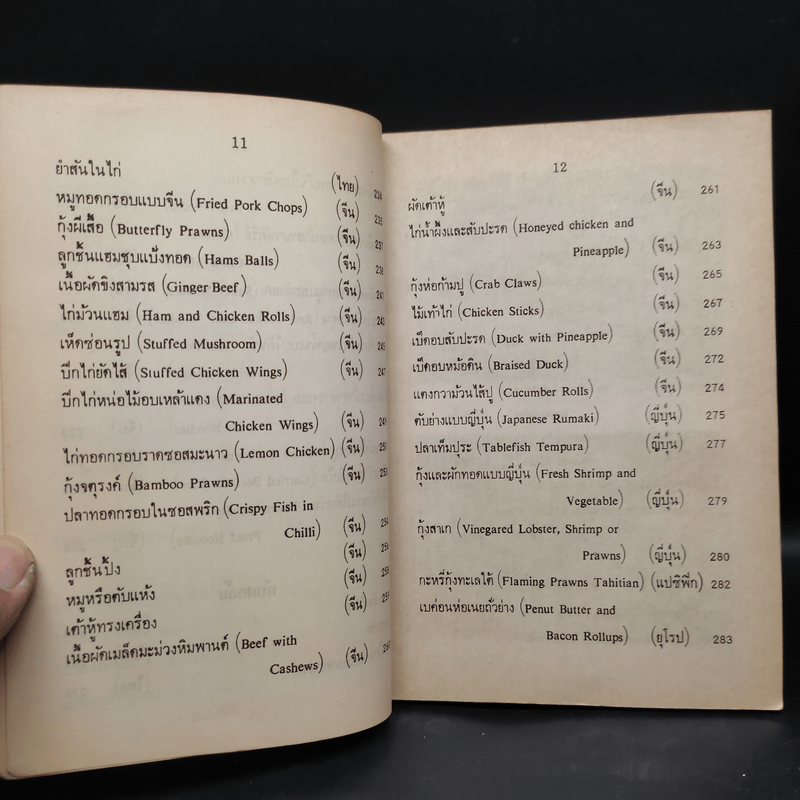 11
ยำสันในไก่ (ไทย) 234
หมูทอดกรอบแบบจีน (Fried Pork Chops) (จีน) 236
กุ้งผีเสื้อ (Butterfly Prawns) (จีน) 237
ลูกชิ้นแฮมชุบแป้งทอด (Hams Balls) (จีน)
เนื้อผัดขิงสามรส (Ginger Beef) (จีน) 241
ไก่ม้วนแฮม (Ham and Chicken Rolls) (จีน) 243
เห็ดซ่อนรูป (Stuffed Mushroom) (จีน) 245
ปีกไก่ยัดไส้ (Stuffed Chicken Wings) (จีน) 247
ปีกไก่หน่อไม้อบเหล้าแดง (Marinated
Chicken Wings) (จีน) 249
ไก่ทอดกรอบราดซอสมะนาว (Lemon Chicken) (จีน)
กุ้งจตุรงค์ (Bamboo Prawns) (จีน)
ปลาทอดกรอบในซอสพริก (Crispy Fish in
Chilli) (จีน) 254
ลูกชิ้นปิ้ง (จีน) 256
หมูหรือตับแห้ง (จีน)
เต้าหู้ทรงเครื่อง (จีน) 259
เนื้อผัดเมล็ดมะม่วงหิมพานต์ (Beef with
Cashews) (จีน) 260
12
ผัดเต้าหู้ (จีน) 261
ไก่น้ำผึ้งและสับปะรด (Honeyed chicken and
Pineapple) (จีน) 263
กุ้งห่อก้ามปู (Crab Claws) (จีน) 265
ไม้เท้าไก่ (Chicken Sticks) (จีน) 267
เป็ดอบสับปะรด (Duck with Pineapple) (จีน) 269
เป็ดอบหม้อดิน (Braised Duck) (จีน) 272
แตงกวาม้วนไส้ปู (Cucumber Rolls) (จีน) 274
ตับย่างแบบญี่ปุ่น (Japanese Rumaki) (ญี่ปุ่น) 275
ปลาเท็มปุระ (Tablefish Tempura) (ญี่ปุ่น) 277
กุ้งและผักทอดแบบญี่ปุ่น (Fresh Shrimp and
Vegetable) (ญี่ปุ่น) 279
กุ้งสาเก (Vinegared Lobster, Shrimp or
Prawns) (ญี่ปุ่น) 280
กะหรี่กุ้งทะเลใต้ (Flaming Prawns Tahitian) (แปซิฟิก) 282
เบค่อนห่อเนยถั่วย่าง (Penut Butter and
Bacon Rollups) (ยุโรป) 283